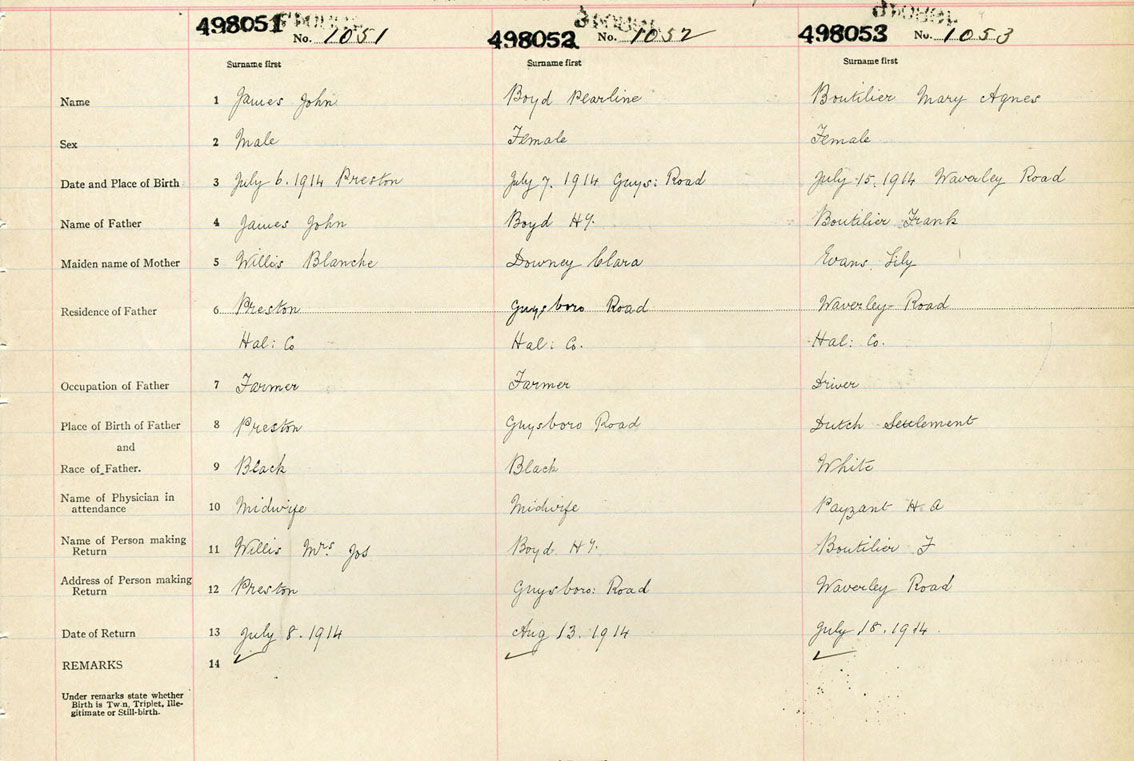 498051 No. 1051 498052 No. 1052 498053 No. 1053
Surname first Surname first Surname first
Name 1 James John Boyd Pearline Boutilier Mary Agnes
Sex 2 Male Female Female
Date and Place of Birth 3 July 6. 1914 Preston July 7. 1914 Guys: Road July 15. 1914 Waverley Road
Name of Father 4 James John Boyd Hy. Boutilier Frank
Maiden name of Mother 5 Willis Blanche Downey Clara Evans Lily
Residence of Father 6 Preston Guysboro Road Waverley Road
Hal: Co Hal: Co. Hal: Co.
Occupation of Father 7 Farmer Farmer Driver
Place of Birth of Father 8 Preston Guysboro Road Dutch Settlement
and
Race of Father. 9 Black Black White
Name of Physician in
attendance 10 Midwife Midwife Payzant H A
Name of Person making
Return 11 Willis Mrs Jos Boyd Hy. Boutilier F
Address of Person making
Return 12 Preston Guysboro: Road Waverley Road
Date of Return 13 July 8. 1914 Aug 13. 1914 July 18. 1914
REMARKS 14
Under remarks state whether
Birth is Twn, Triplet, Ille-
gitimate or Still-birth.